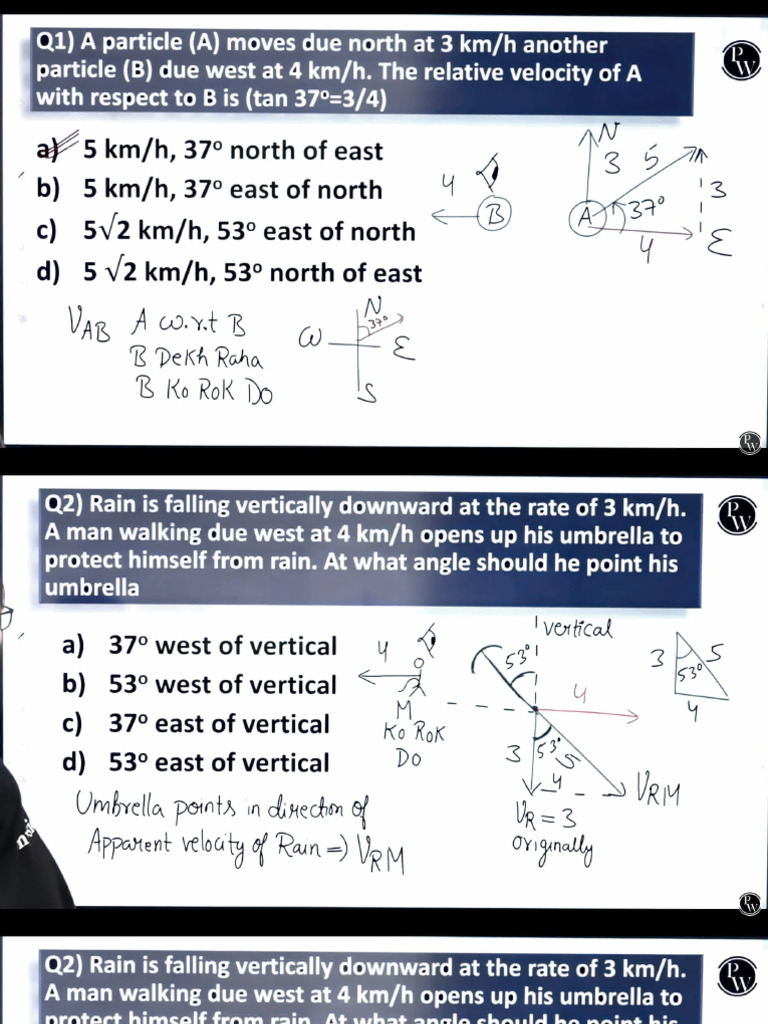 Q1) A particle (A) moves due north at 3 km/h another
particle (B) due west at 4 km/h. The relative velocity of A
with respect to B is (tan 37º=3/4)
PW
a) 5 km/h, 37º north of east
b) 5 km/h, 37º east of north
c) 5√2 km/h, 53º east of north
d) 5 √2 km/h, 53º north of east
4
B
N
3 5
3
A
37º
4
E
VAB A w.r.t B
B Dekh Raha
B Ko Rok Do
N
37º
W
E
S
PW
Q2) Rain is falling vertically downward at the rate of 3 km/h.
A man walking due west at 4 km/h opens up his umbrella to
protect himself from rain. At what angle should he point his
umbrella
PW
a) 37º west of vertical
b) 53º west of vertical
c) 37º east of vertical
d) 53º east of vertical
4
M
Ko Rok
Do
vertical
53º
4
3
53º
5
4
VRM
VR = 3
originally
3
5
53º
4
Umbrella points in direction of
Apparent velocity of Rain => VRM
PW
Q2) Rain is falling vertically downward at the rate of 3 km/h.
A man walking due west at 4 km/h opens up his umbrella to
protect himself from rain. At what angle should he point his
PW